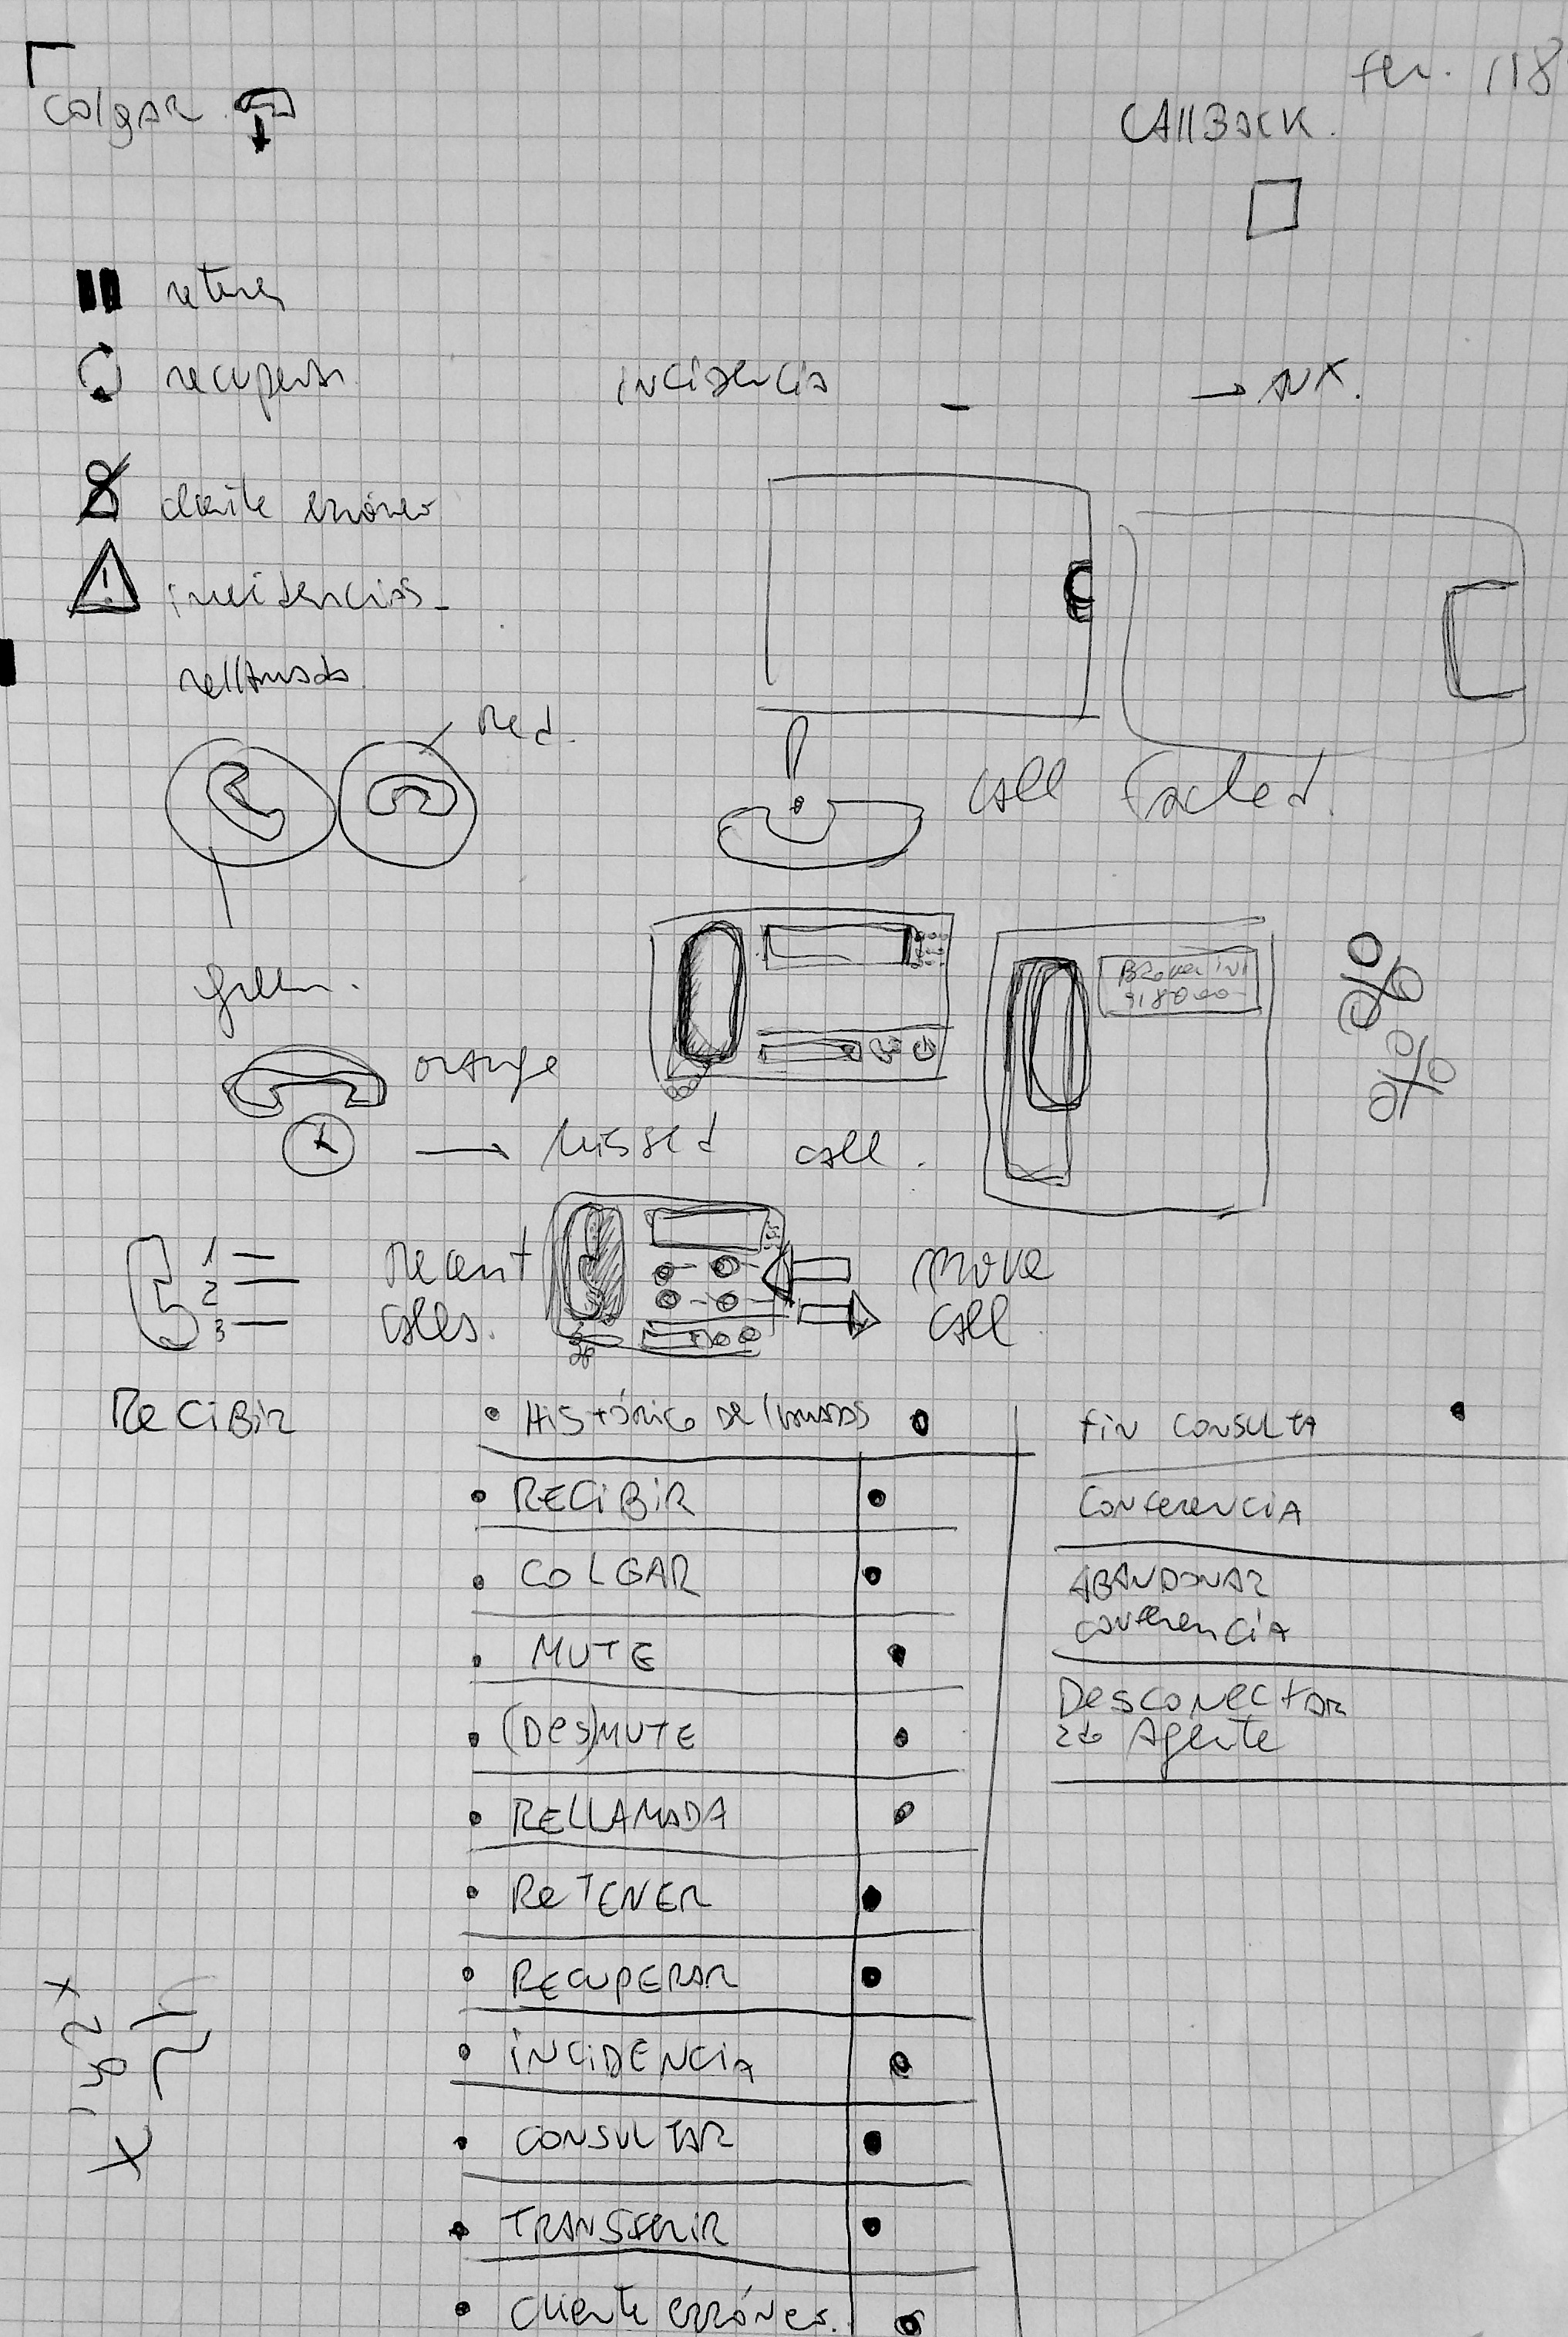 colgar.
CAllBACK.
retener
recuperar
incidencia
→ AUX.
cliente erróneo
incidencias
rellamada.
Red.
call Failed.
green.
orange
→ missed call.
1
2
3
Recent calls.
move call
ReCiBir
• HiStórico De llamadas
• RECiBiR
• COLGAR
• MUTE
• (Des)MUTE
• RELLAMADA
• ReTENER
• RECUPERAR
• iNCiDENCiA
• CONSULTAR
• TRANSFERIR
• Cliente erróneo.
FiN CONSULTA
CONFERENCiA
ABANDONAR
CONFERENCiA
DesCONECtAR
2do Agente